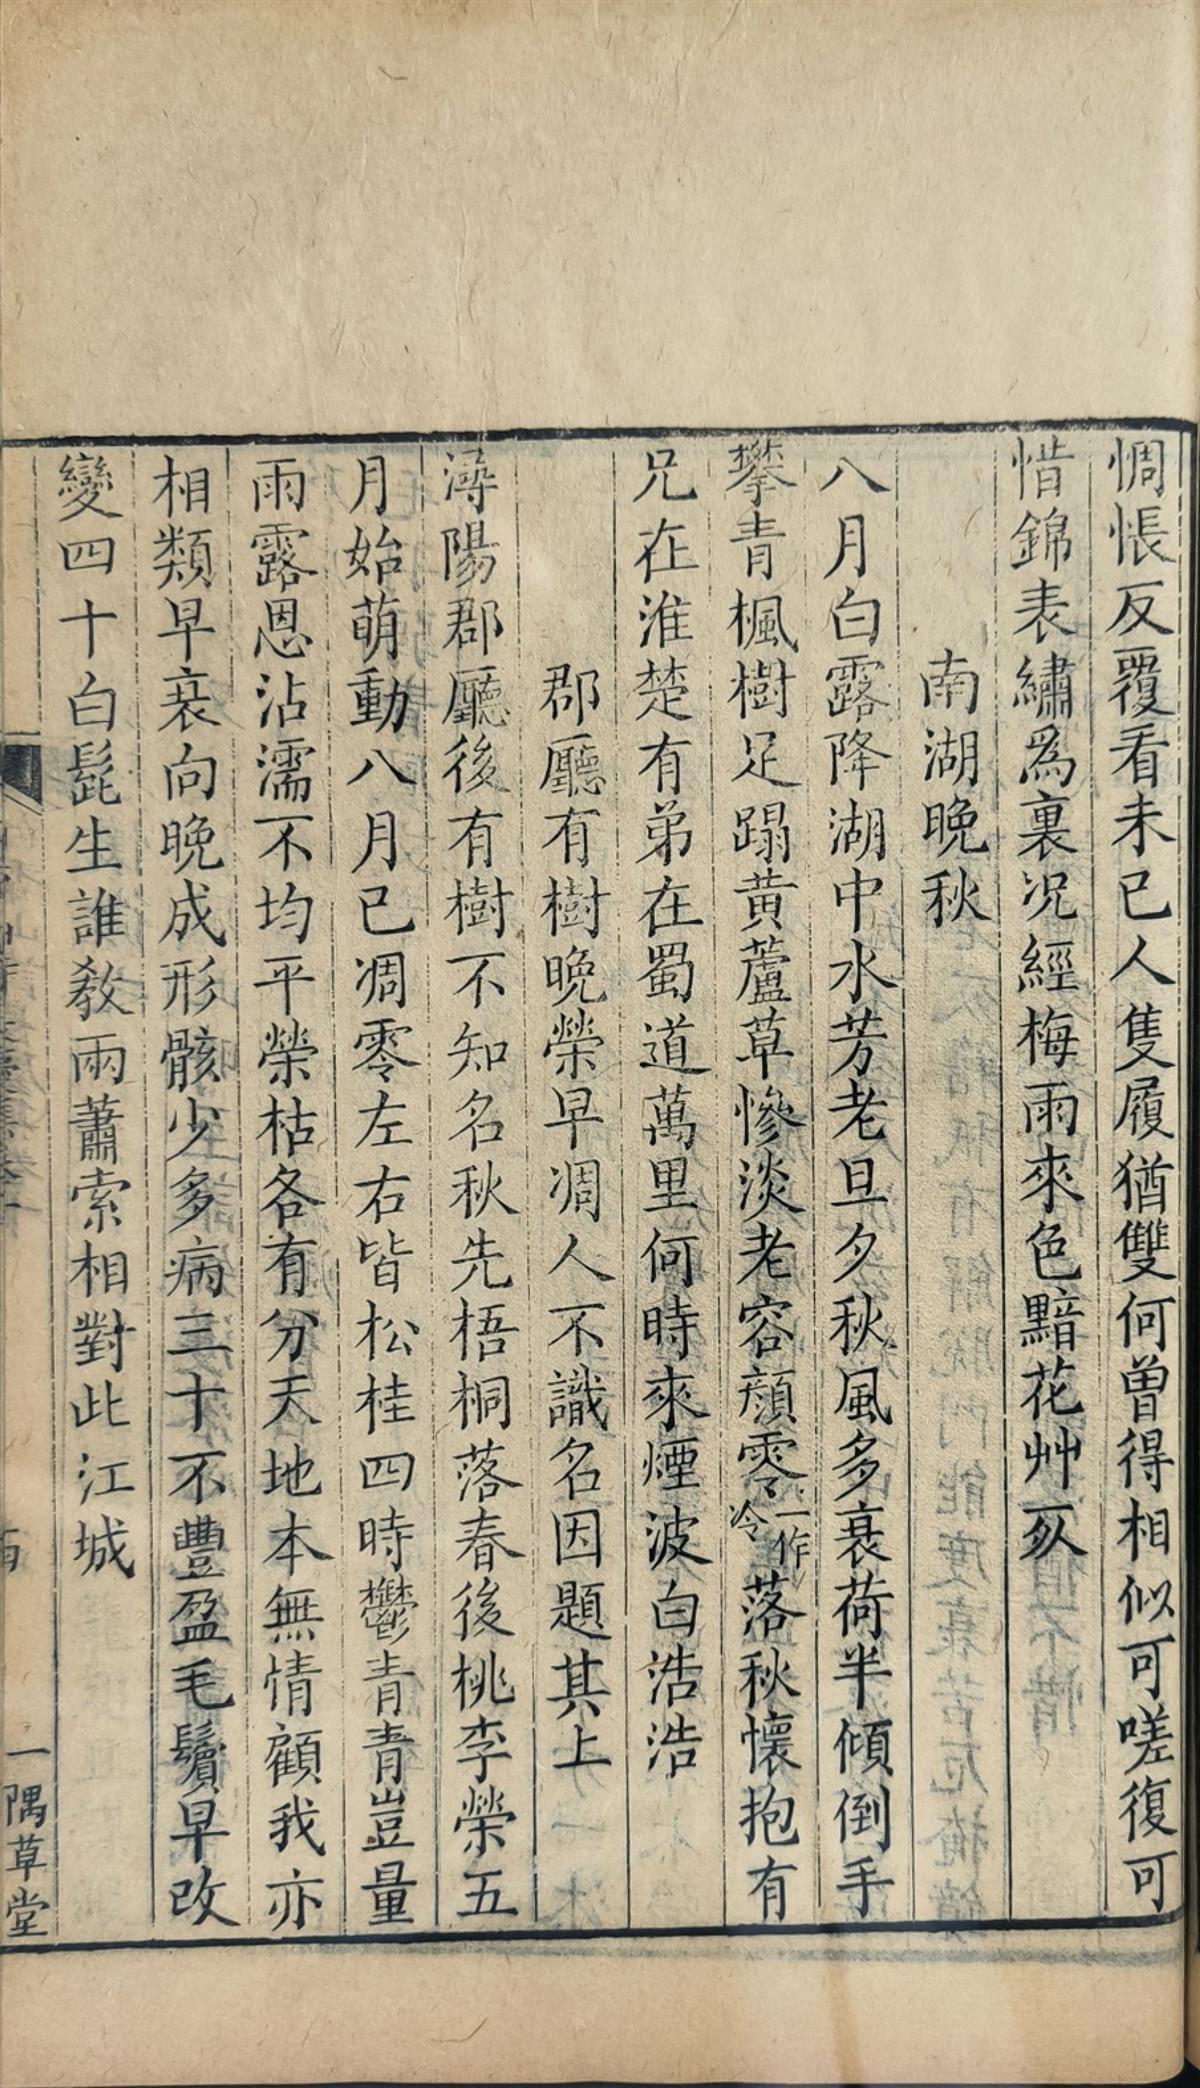 惆悵反覆看未已人隻履猶雙何曾得相似可嗟復可
惜錦表繡爲裏况經梅雨來色黯花艸㱙
南湖晚秋
八月白露降湖中水芳老旦夕秋風多衰荷半傾倒手
攀青楓樹足蹋黃蘆草慘淡老容顏零一作冷落秋懷抱有
兄在淮楚有弟在蜀道萬里何時來煙波白浩浩
郡廳有樹晚榮早凋人不識名因題其上
潯陽郡廳後有樹不知名秋先梧桐落春後桃李榮五
月始萌動八月已凋零左右皆松桂四時鬱青青豈量
雨露恩沾濡不均平榮枯各有分天地本無情顧我亦
相類早衰向晚成形骸少多病三十不豐盈毛鬢早改
變四十白髭生誰教兩蕭索相對此江城
一隅草堂